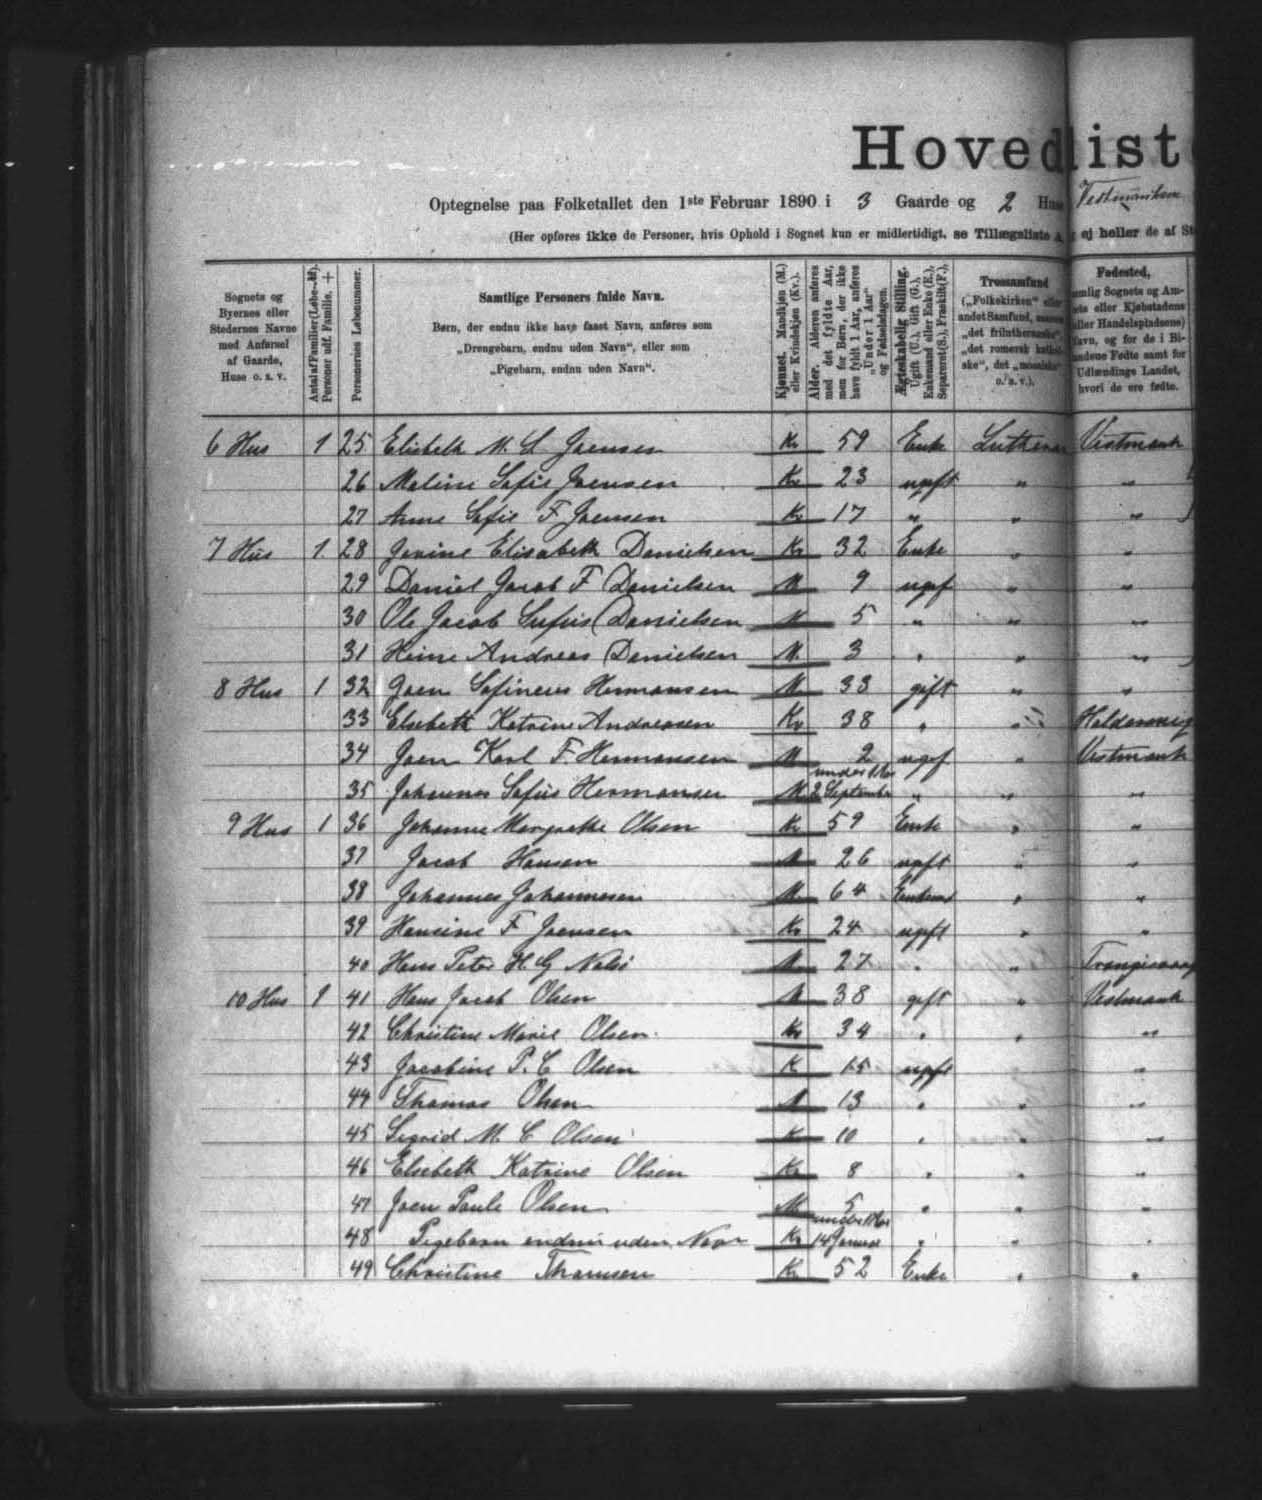 Hovedliste
Optegnelse paa Folketallet den 1ste Februar 1890 i 3 Gaarde og 2 Huse
(Her opføres ikke de Personer, hvis Ophold i Sognet kun er midlertidigt, se Tillægsliste A, ej heller de af
Sognets og Byernes eller Stedernes Navne med Anførsel af Gaarde, Huse o. s. v.
Antal af Familier (Løbe-№). Personer udf. Familie. +
Personernes Løbenummer.
Samtlige Personers fulde Navn.
Børn, der endnu ikke have faaet Navn, anføres som
„Drengebarn, endnu uden Navn", eller som
„Pigebarn, endnu uden Navn".
Kjønnet. Mandkjøn (M.) eller Kvindekjøn (Kv.).
Alder. Alderen anføres med det fyldte Aar, men for Børn, der ikke have fyldt 1 Aar, anføres „Under 1 Aar" og Fødselsdagen.
Ægteskabelig Stilling. Ugift (U.), Gift (G.), Enkemand eller Enke (E.), Separeret (S.), Fraskilt (F.).
Trossamfund
(„Folkekirken" eller andet Samfund, saasom „det frilutherske", „det romersk katholske", det „mosaiske" o. s. v.).
Fødested,
Sognets og Amtets eller Kjøbstadens (eller Handelspladsens) Navn, og for de i Bilandene Fødte samt for Udlændinge Landet, hvori de ere fødte.
6 Hus 1 25 Elisbeth M. S Joensen Kv 59 Enke Luthersk Vestmanh
26 Maline Sofie Joensen Kv 23 ugift " "
27 Anne Sofie F Joensen Kv 17 " " "
7 Hus 1 28 Jovine Elisabeth Danielsen Kv 32 Enke " "
29 Daniel Jacob F Danielsen M 9 ugif " "
30 Ole Jacob Sufus Danielsen M 5 " " "
31 Heine Andreas Danielsen M. 3 " " "
8 Hus 1 32 Joen Sofinus Hermansen M 33 gift " "
33 Elsebeth Katrine Andreasen Kv 38 " " Haldersvig
34 Joen Karl F. Hermansen M 2 ugif " Vestmanh
35 Johannes Sofus Hermansen M under 1 Aar 2 September " " "
9 Hus 1 36 Johanne Margrethe Olsen Kv 59 Enke " "
37 Jacob Hansen M 26 ugift " "
38 Johannes Johannesen M 64 Enkem " "
39 Hansine F Joensen Kv 24 ugift " "
40 Hans Peter H. G Nolsø M 27 " " Trangisvaag
10 Hus 1 41 Hans Jacob Olsen M 38 gift " Vestmanh
42 Christine Marie Olsen Kv 34 " " "
43 Jacobine P. C Olsen K 15 ugift " "
44 Thomas Olsen M 13 " " "
45 Sigrid M. C Olsen Kv 10 " " "
46 Elsebeth Katrine Olsen Kv 8 " " "
47 Joen Paule Olsen M 5 " " "
48 Pigebarn endnu uden Navn Kv under 1 Aar 14 Januar " " "
49 Christine Thomsen Kv 52 Enke " "